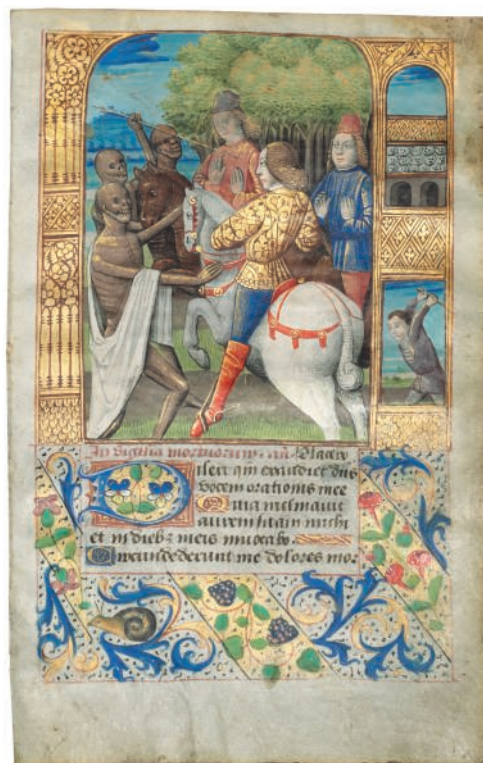 In vigilia mortuorum. an. Placebo
Dilexi qm exaudiet dns
vocem orationis mee
Quia inclinauit
aurem suam michi
et in diebz meis inuocabo
Circundederunt me dolores mor